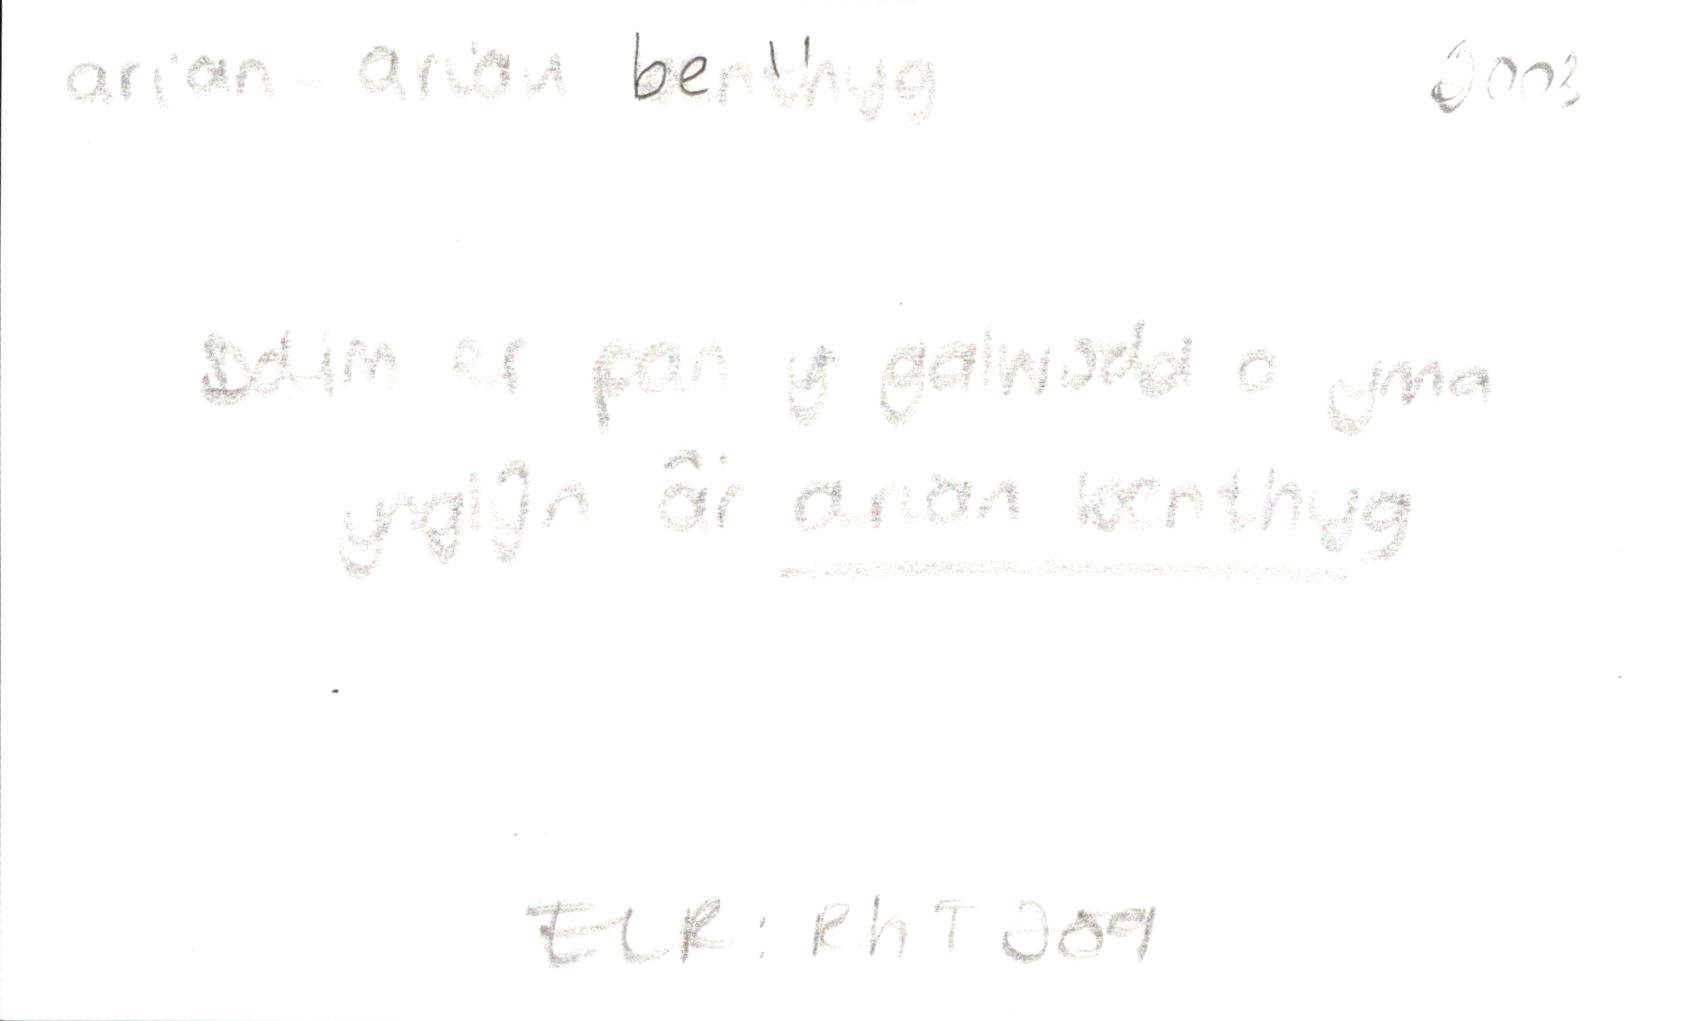 arian - arian benthyg 2003
Ddim er pan y galwodd o yma
ynglŷn â'r arian benthyg
ELR: RhT 209